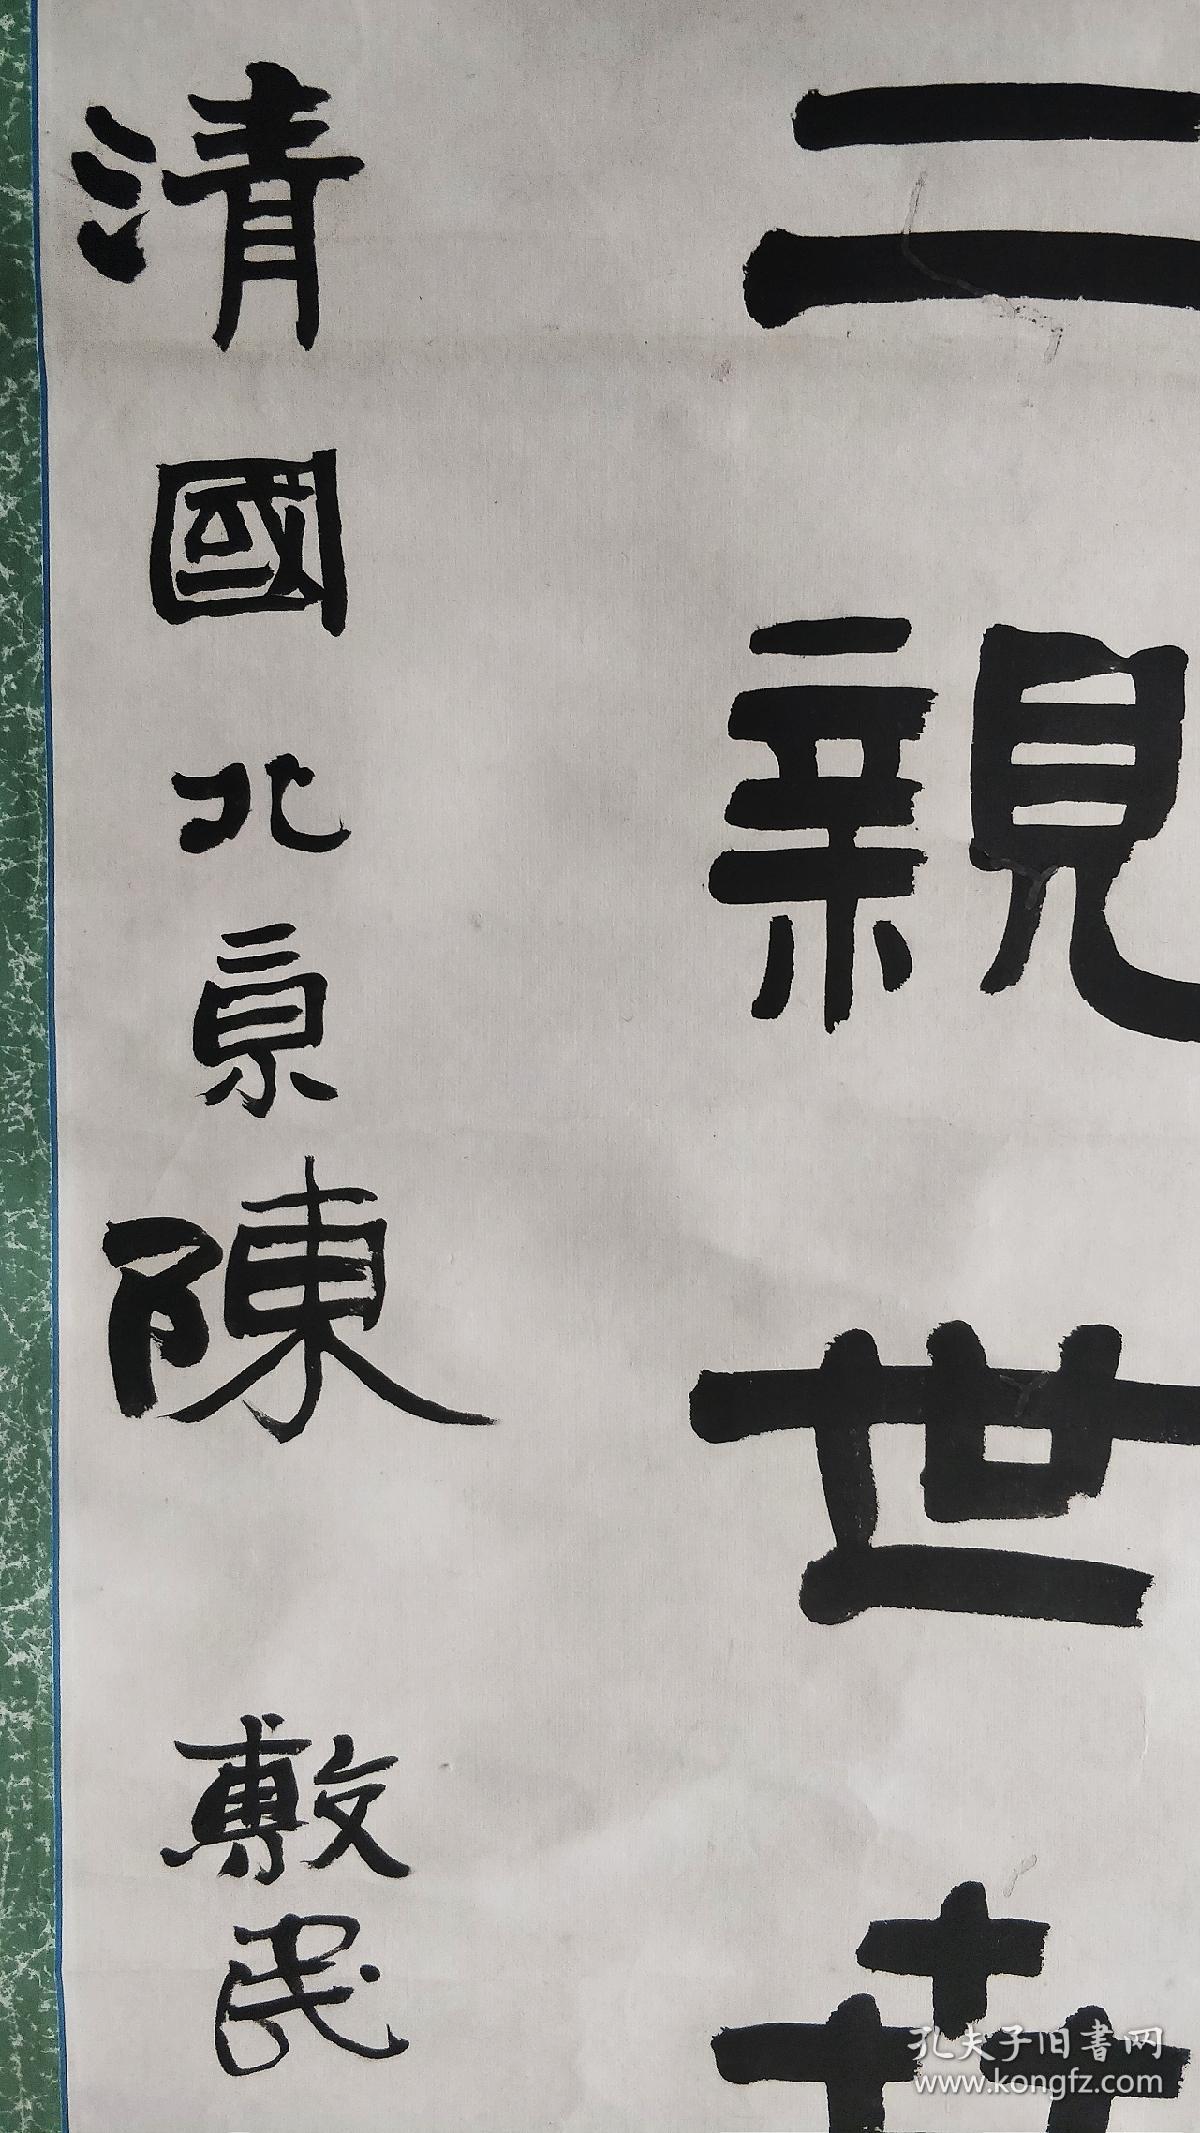 二親世
清國北京陳敷民
孔夫子旧書网
www.kongfz.com